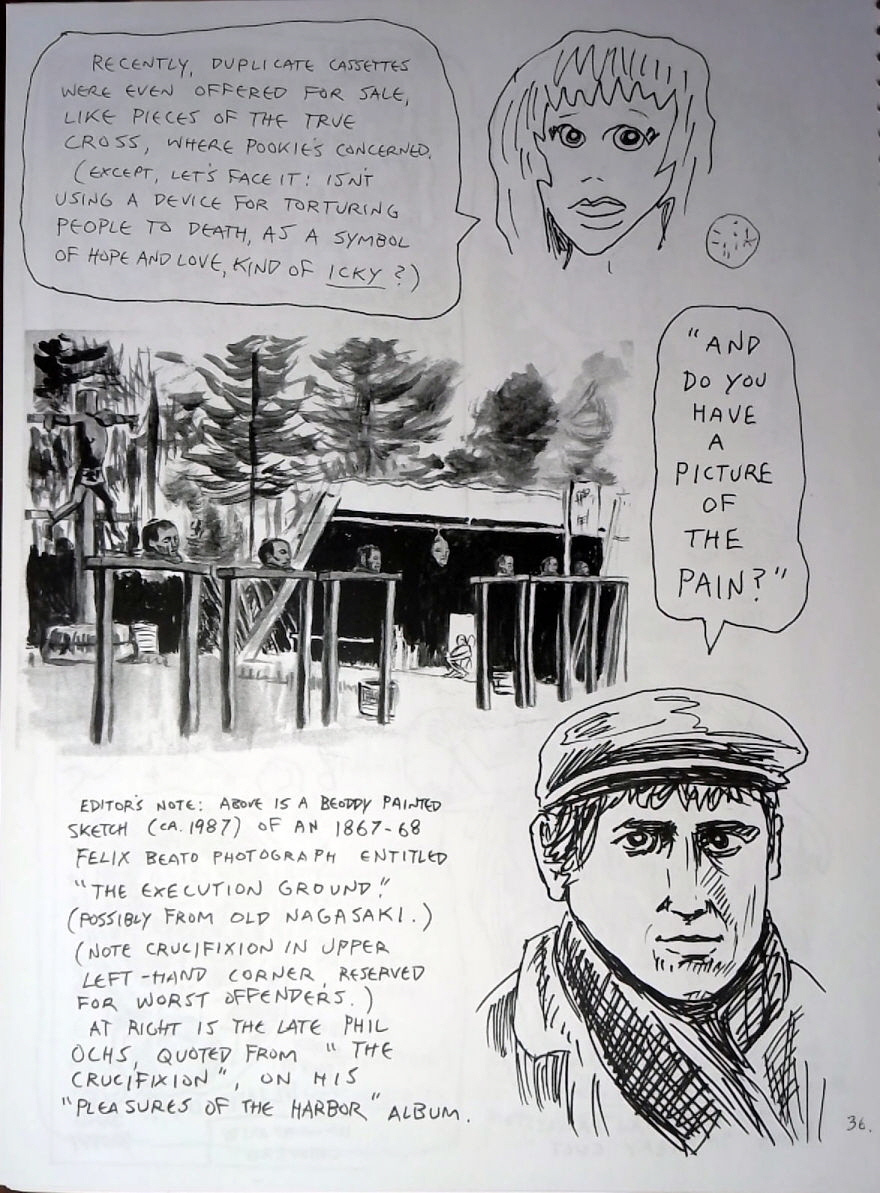 RECENTLY, DUPLICATE CASSETTES
WERE EVEN OFFERED FOR SALE,
LIKE PIECES OF THE TRUE
CROSS, WHERE POOKIE'S CONCERNED.
(EXCEPT, LET'S FACE IT: ISN'T
USING A DEVICE FOR TORTURING
PEOPLE TO DEATH, AS A SYMBOL
OF HOPE AND LOVE, KIND OF ICKY?)
"AND
DO YOU
HAVE
A
PICTURE
OF
THE
PAIN?"
EDITOR'S NOTE: ABOVE IS A BEODDY PAINTED
SKETCH (CA. 1987) OF AN 1867-68
FELIX BEATO PHOTOGRAPH ENTITLED
"THE EXECUTION GROUND."
(POSSIBLY FROM OLD NAGASAKI.)
(NOTE CRUCIFIXION IN UPPER
LEFT-HAND CORNER, RESERVED
FOR WORST OFFENDERS.)
AT RIGHT IS THE LATE PHIL
OCHS, QUOTED FROM "THE
CRUCIFIXION", ON HIS
"PLEASURES OF THE HARBOR" ALBUM.
36.